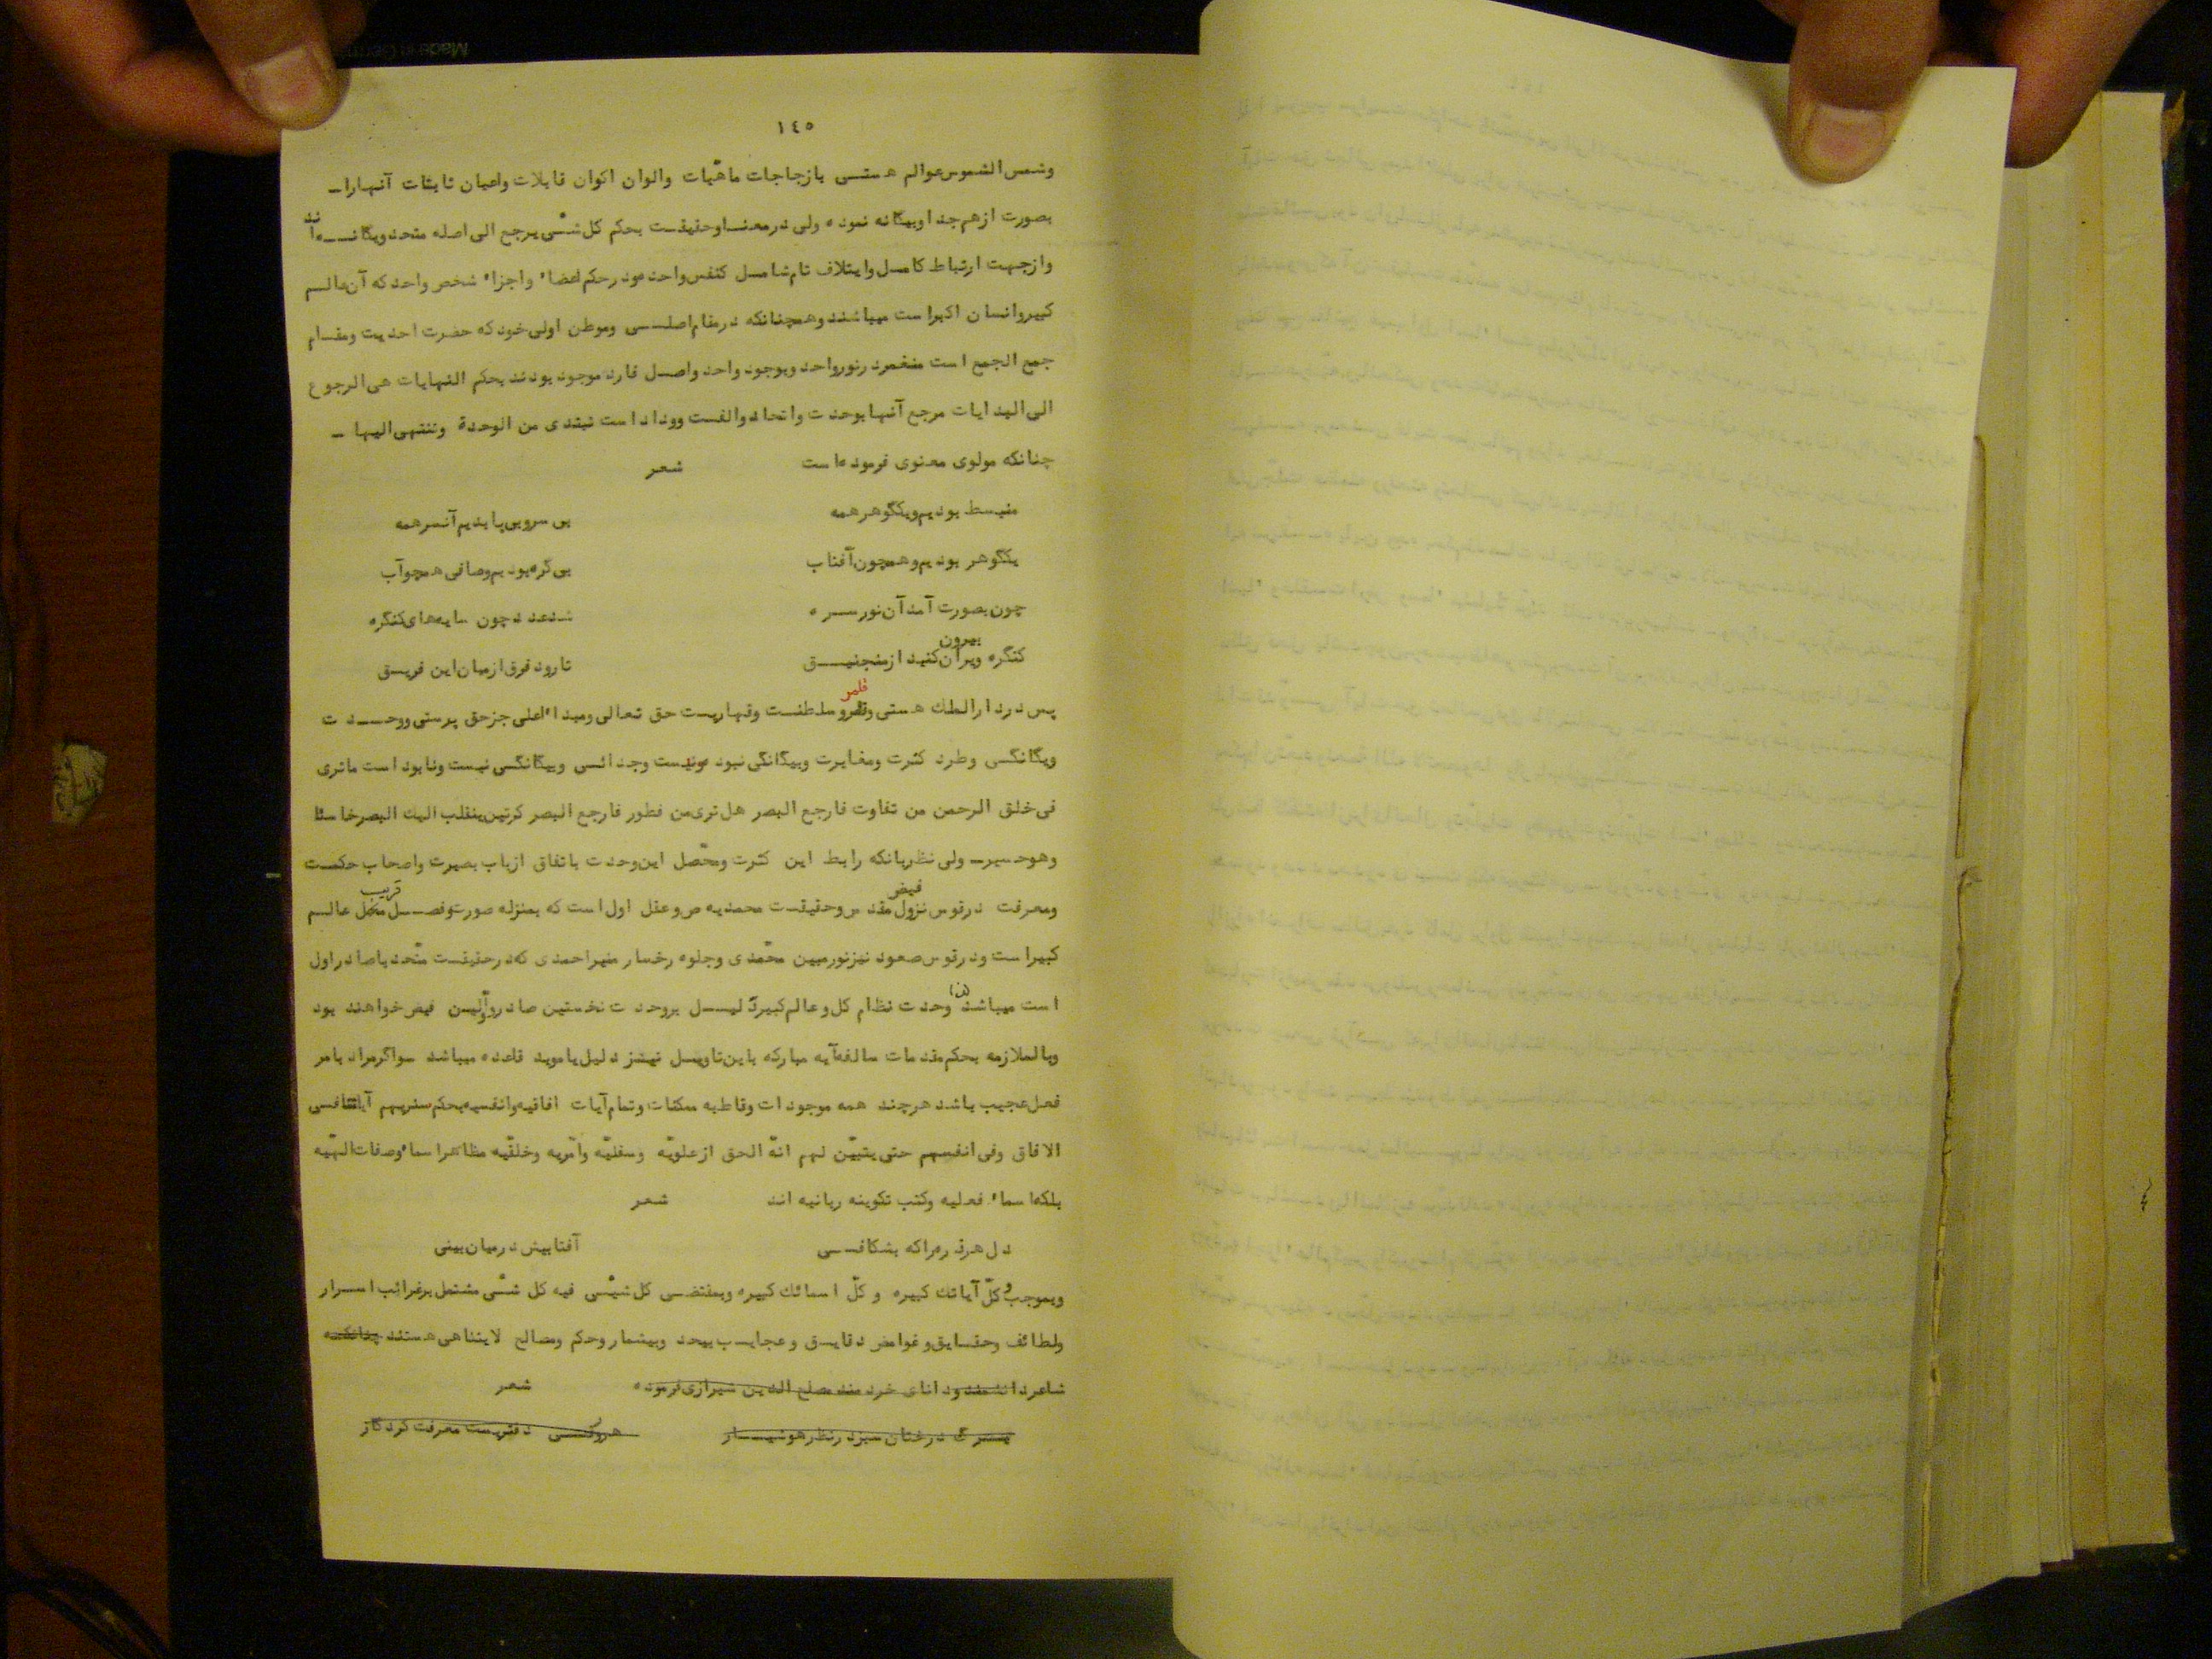 ١٤٥
وشمس الشموس عوالم هستی بازجاجات ماهیّات والوان اکوان قابلات واعیان ثابتات آنهارا ـ
بصورت ازهم جدا وبیگانه نموده ولی درمعنا وحقیقت بحکم کل شیٔ یرجع الی اصله متحد ویگانه اند
وازجهت ارتباط کامل وایتلاف تام شامل کنفس واحده ودرحکم اعضاء واجزاء شخص واحد که آن عالم
کبیر وانسان اکبر است میباشند وهمچنانکه درمقام اصلی وموطن اولی خود که حضرت احدیت ومقام
جمع الجمع است منغمر درنور واحد وبوجود واحد واصل فارد موجود بودند بحکم النهایات هی الرجوع
الی البدایات مرجع آنها بوحدت واتحاد والفت ووداد است تبتدی من الوحدة وتنتهی الیها ـ
چنانکه مولوی معنوی فرموده است شعر
منبسط بودیم ویکگوهر همه بی سروبی پا بدیم آنسر همه
یکگوهر بودیم وهمچون آفتاب بی گره بودیم وصافی همچو آب
چون بصورت آمد آن نور سره شد عدد چون سایه های کنگره
بیرون
کنگره ویران کنید از منجنیق تا رود فرق ازمیان این فریق
قلمرو
پس در دارالملك هستی وقلمرو سلطنت وقهاریت حق تعالی ومبدا اعلی جز حق پرستی ووحدت
ویگانگی وطرد کثرت ومغایرت وبیگانگی نبود ونیست وجدائی وبیگانگی نیست ونابود است ماتری
فی خلق الرحمن من تفاوت فارجع البصر هل تری من فطور فارجع البصر کرتین ینقلب الیك البصر خاسئا
وهو حسیر ـ ولی نظر بانکه رابط این کثرت ومحّصل این وحدت باتفاق ارباب بصیرت واصحاب حکمت
فیض قریب
ومعرفت درقوس نزول مقدس وحقیقت محمدیه ص وعقل اول است که بمنزله صورت وفصل محصّل عالم
کبیر است ودرقوس صعود نیز نور مبین محمّدی وجلوه رخسار منیر احمدی که درحقیقت متّحد باصادر اول
است میباشد وحدت نظام کل وعالم کبیر دلیل بروحدت نخستین صادر واولین فیض خواهند بود
وبالملازمه بحکم مقدمات سالفه آیه مبارکه باین تاویل نیز دلیل یا موید قاعده میباشد سوا اگر مراد بامر
فعل عجیب باشد هرچند همه موجودات وقاطبه ممکنات وتمام آیات افاقیه وانفسیه بحکم سنریهم آیاتنا فی
الافاق وفی انفسهم حتی یتبیّن لهم انّه الحق از علویّه وسفلیّه وامّریه وخلقیّه مظاهر اسماء وصفات الهیّه
بلکه اسماء فعلیه وکتب تکوینه ربانیه اند شعر
دل هر ذره را که بشکافی آفتابیش درمیان بینی
وبموجب وکلّ آیاتك کبیره و کلّ اسمائك کبیره وبمقتضی کل شیٔ فیه کل شیٔ مشتمل برغرائب اسرار
ولطائف وحقایق وغوامض دقایق وعجایب بیحد وبیشمار وحکم ومصالح لایتناهی هستند چنانکه
شاعر دانشمند ودانای خردمند مصلح الدین شیرازی فرموده شعر
برگ درختان سبز درنظر هوشیار هر ورقی دفتریست معرفت کردگار